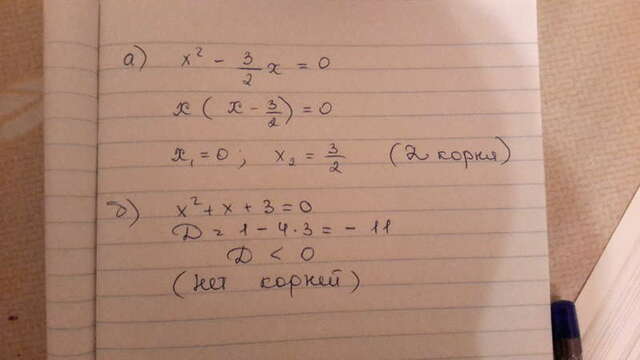 а) x² - 3/2 x = 0
x ( x - 3/2 ) = 0
x₁ = 0 ; x₂ = 3/2 (2 корня)
б) x² + x + 3 = 0
D = 1 - 4·3 = - 11
D < 0
(нет корней)